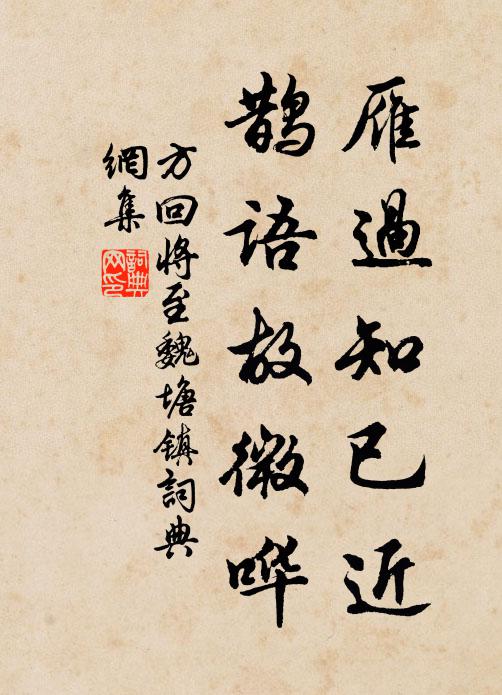 雁過知已近
鵲語故微哗
方回将至魏塘镇詞典
網集
詞典
网印